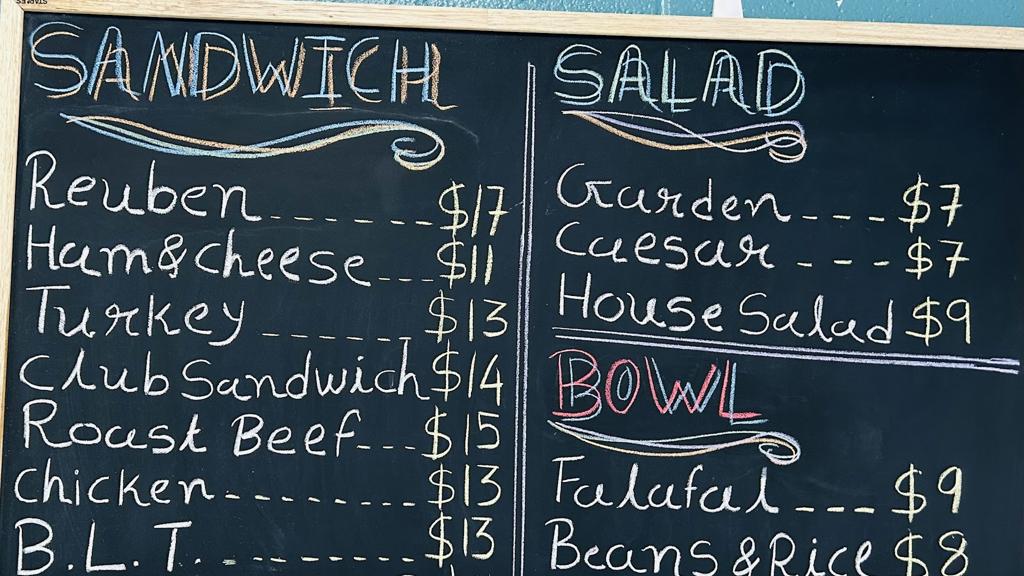 SANDWICH
Reuben------- $17
Ham&cheese--- $11
Turkey ------- $13
Club Sandwich $14
Roast Beef--- $15
chicken------- $13
B.L.T. ------- $13
SALAD
Garden--- $7
Caesar --- $7
House Salad $9
BOWL
Falafal --- $9
Beans & Rice $8